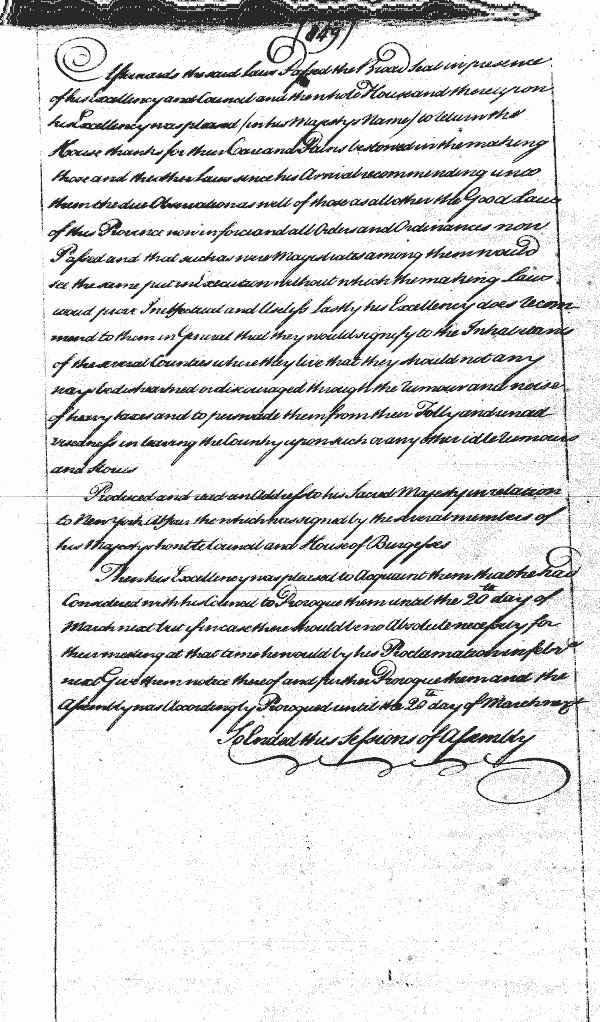 (849)
Afterwards the said Laws Passed the Broad Seal in presence
of his Excellency and Council and the whole House and thereupon
his Excellency was pleased (in his Majestys Name) to return the
House thanks for their Care and Pains bestowed in the making
those and the other Laws since his Arrival recommending unto
them the due Observation as well of those as all other the Good Laws
of this Province now in force and all Orders and Ordinances now
Passed and that such as were Magistrates among them would
see the same put in Execution without which the making Laws
would prove Ineffectual and Useless Lastly his Excellency does recom-
mend to them in General that they would signify to the Inhabitants
of the several Counties where they live that they should not any
ways be disheartned or discouraged through the rumour and noise
of heavy taxes and to perswade them from their Folly and unad-
visedness in leaving the Country upon such or any other idle rumours
and stories
Produced and read an Address to his Sacred Majesty in relation
to New York Affair the which was signed by the several members of
his Majestys honble Council and House of Burgesses
Then his Excellency was pleased to Acquaint them that he had
Considered with his Council to Prorogue them until the 20th day of
March next but if in case there should be no Absolute necessity for
their meeting at that time he would by his Proclamation in
next Give them notice thereof and further Prorogue them and the
Assembly was Accordingly Prorogued until the 20th day of March next
So Ended this Sessions of Assembly